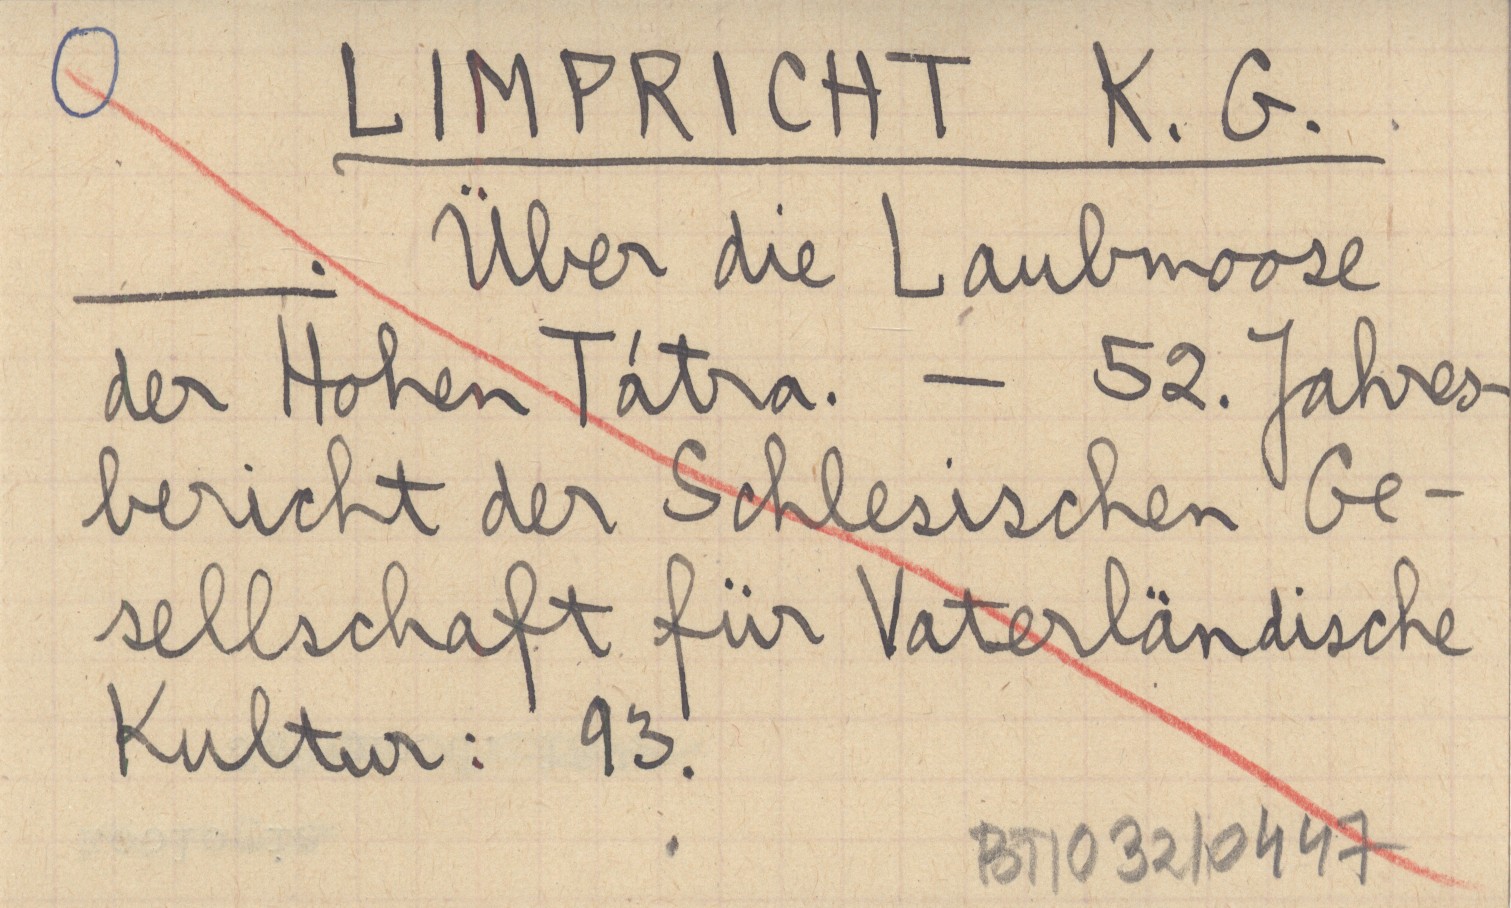 LIMPRICHT K. G.
____: Über die Laubmoose
der Hohen Tátra. — 52. Jahres-
bericht der Schlesischen Ge-
sellschaft für Vaterländische
Kultur: 93.
BT/032/0447